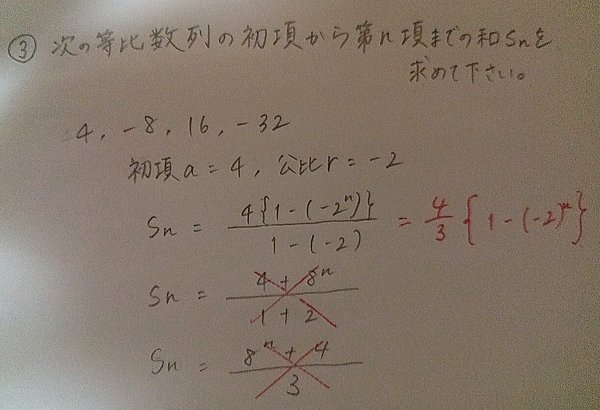 ③ 次の等比数列の初項から第n項までの和Snを
求めて下さい。
4, -8, 16, -32
初項a = 4, 公比r = -2
Sn = 4{1-(-2ⁿ)} / 1-(-2) = 4/3 {1-(-2)ⁿ}
Sn = 4+8ⁿ / 1+2
Sn = 8ⁿ+4 / 3